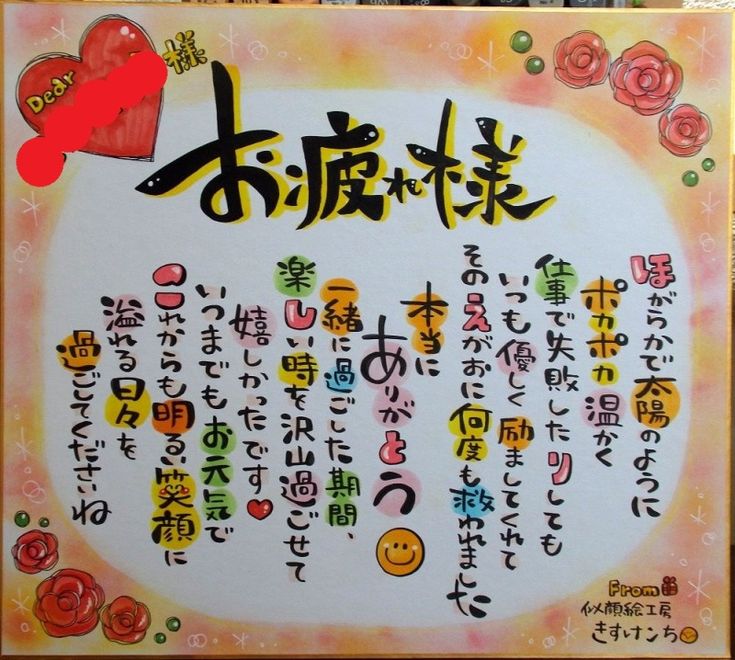 Dear
様
お疲れ様
ほがらかで太陽のように
ポカポカ温かく
仕事で失敗したりしても
いつも優しく励ましてくれて
そのえがおに何度も救われました
本当に
ありがとう
一緒に過ごした期間、
楽しい時を沢山過ごせて
嬉しかったです
いつまでもお元気で
これからも明るい笑顔に
溢れる日々を
過ごしてくださいね
From
似顔絵工房
きすけンち